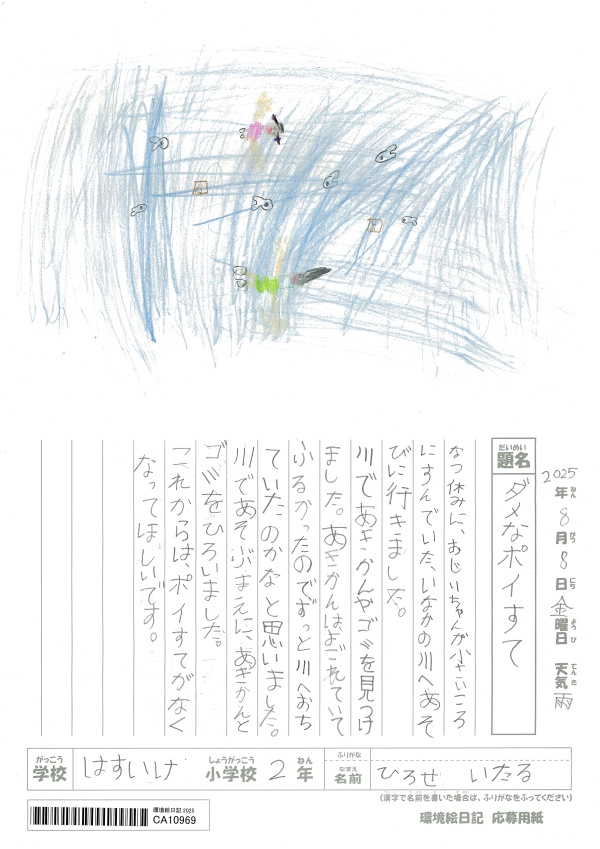 2025年8月8日金曜日 天気雨
ねん がつ にち ようび てんき
だいめい
題名 ダメなポイすて
なつ休みに、おじいちゃんが小さいころ
にすんでいた、いなかの川へあそ
びに行きました。
川であきかんやゴミを見つけ
ました。あきかんはよごれていて
ふるかったのでずっと川へおち
ていたのかなと思いました。
川であそぶまえに、あきかんと
ゴミをひろいました。
これからは、ポイすてがなく
なってほしいです。
がっこう しょうがっこう ねん ふりがな
学校 はすいけ 小学校 2年 名前 ひろせ いたる
なまえ
(漢字で名前を書いた場合は、ふりがなをふってください)
環境絵日記 応募用紙
環境絵日記 2025
CA10969